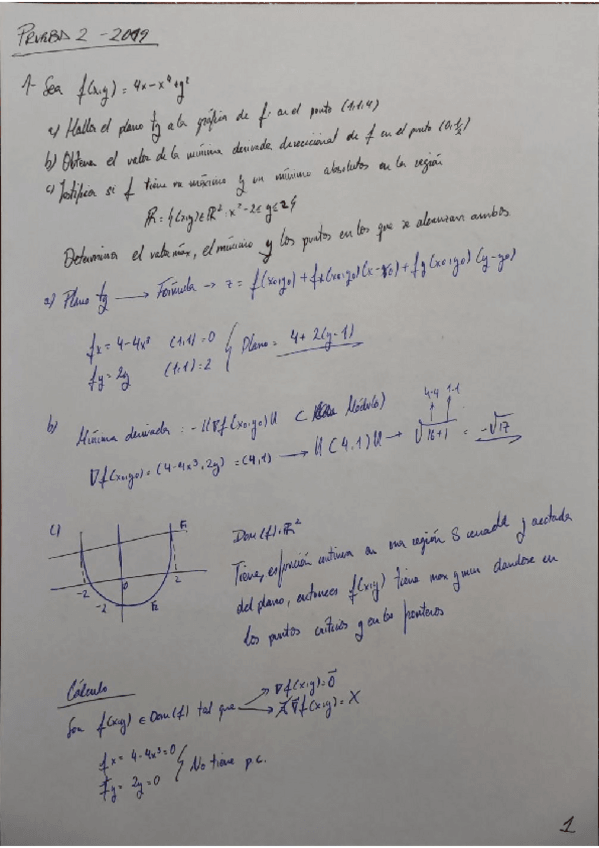 PRUEBA 2 - 2019
1- Sea f(x,y) = 4x - x⁴ + y²
a) Hallar el plano tg a la gráfica de f en el punto (1,1,4)
b) Obtener el valor de la mínima derivada direccional de f en el punto (0,1/2)
c) Justifica si f tiene un máximo y un mínimo absolutos en la región
R = {(x,y) ∈ ℝ² : x² - 2 ≤ y ≤ 2}
Determina el valor máx, el mínimo y los puntos en los que se alcanzan ambos.
a) Plano tg → Fórmula → z = f(x0,y0) + fx(x0,y0)(x-x0) + fy(x0,y0)(y-y0)
fx = 4-4x³ (1,1) = 0
fy = 2y (1,1) = 2
Plano = 4 + 2(y-1)
b) Mínima derivada: -||∇f(x0,y0)|| ( Módulo)
4·4 1·1
∇f(x0,y0) = (4-4x³, 2y) = (4,1) → ||(4,1)|| → √16+1 = -√17
c) F1
-2 0 2
-2 F2
Dom(f) = ℝ²
Tiene, es función continua en una región S cerrada y acotada
del plano, entonces f(x,y) tiene max y min dandose en
los puntos críticos y en las fronteras
Cálculo
Son f(x,y) ∈ Dom(f) tal que
∇f(x,y) = 0
∄ ∇f(x,y) = X
fx = 4-4x³ = 0
fy = 2y = 0
No tiene p.c.
1